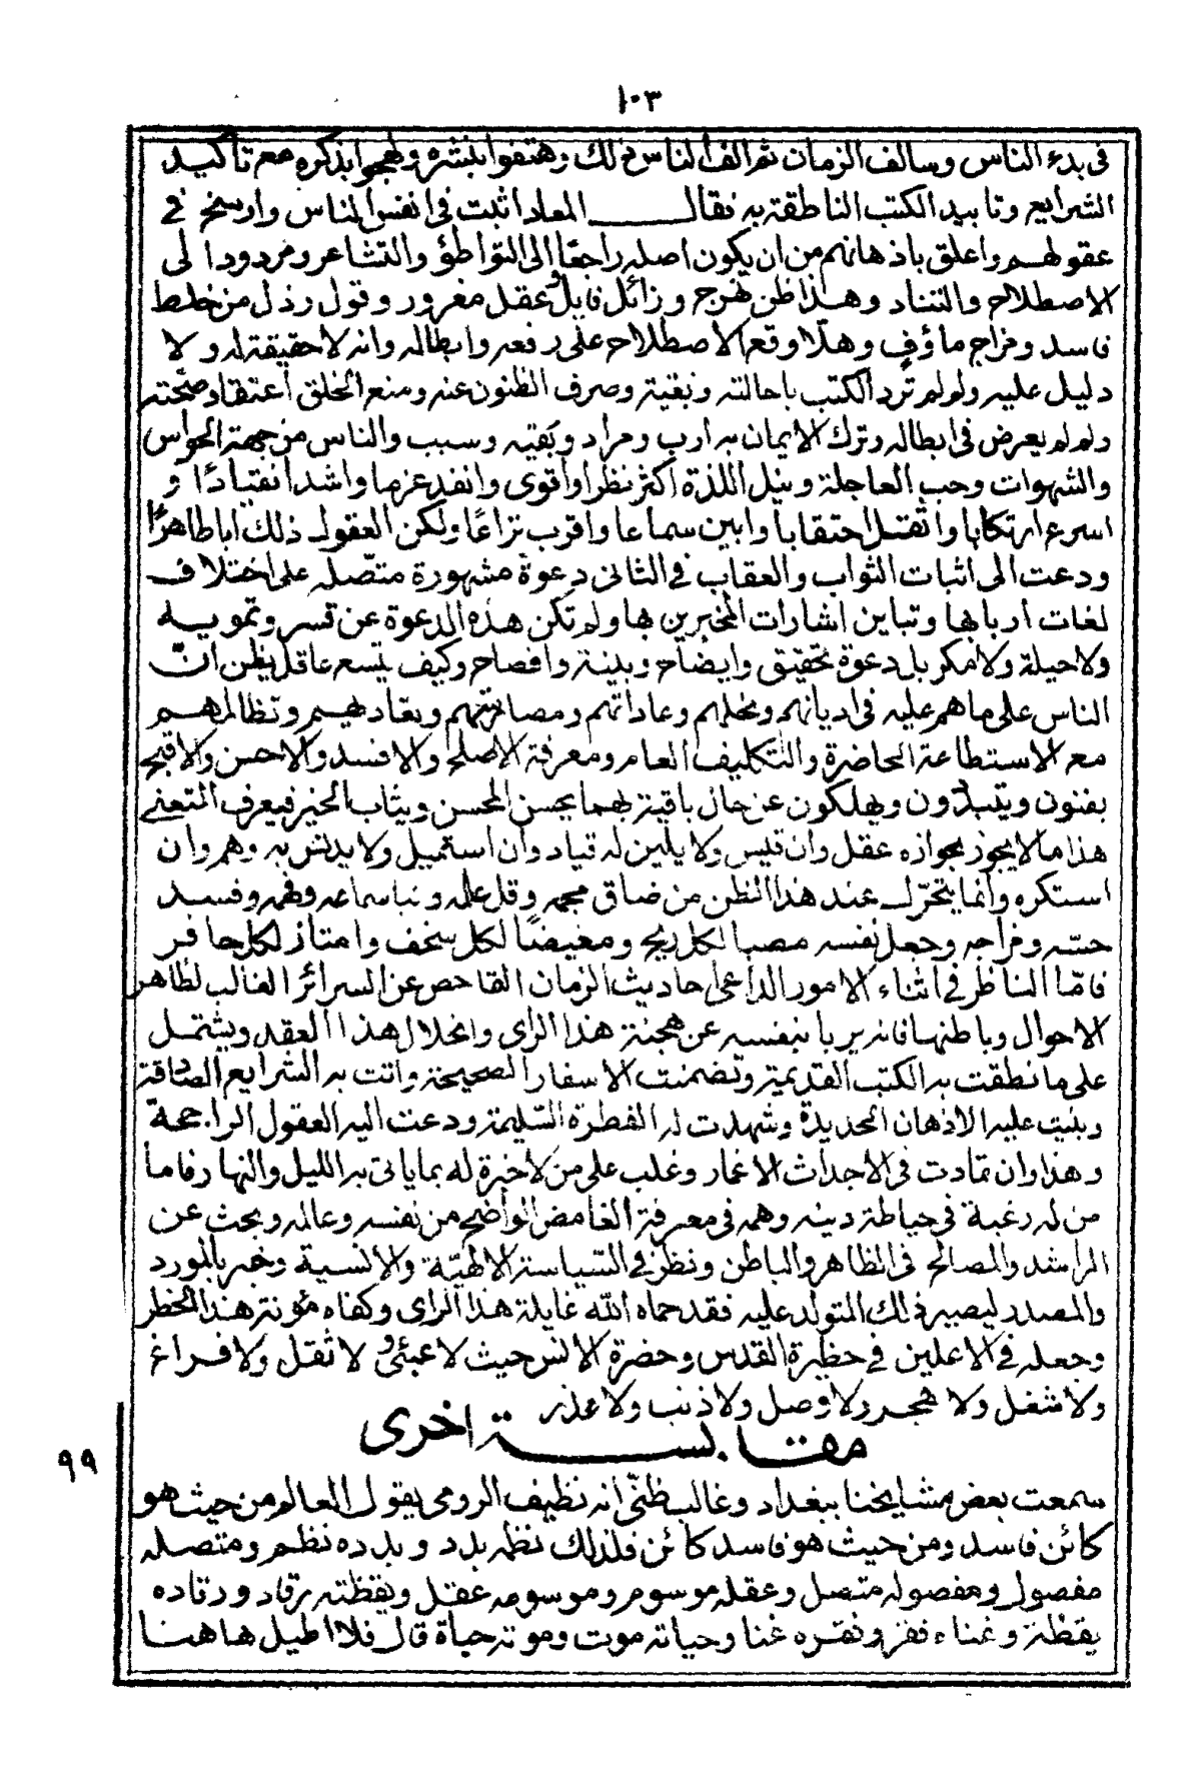 ١٠٣
فى بدء الناس وسالف الزمان ثم الف الناس ذلك وهتفوا بنشره ولهجوا بذكره مع تأكيد
الشرايع وتاييد الكتب الناطقة به فقال المعاد اثبت فى انفس الناس وارسخ فى
عقولهم واعلق باذهانهم من ان يكون اصله راجعا الى التواطؤ والتشاعر ومردودا الى
الاصطلاح والتناد وهذا ظن بهرج وزائل فايل وعقل مغرور وقول رذل من خلط
فاسد ومزاج ماؤف وهلا وقع الاصطلاح على رفعه وابطاله وانه لا حقيقة له ولا
دليل عليه ولو لم ترد الكتب باحالته ونفيه وصرف الظنون عنه ومنع الخلق اعتقاد صحته
ولم لم يعرض فى ابطاله وترك الايمان به ارب ومراد وبقيه وسبب والناس من جهة الحواس
والشهوات وحب العاجلة ونيل اللذة اكثر نظرا واقوى وانفد عزما واشد انقيادًا و
اسرع ارتكابا واثقل احتقابا وابين سماعا واقرب نزاعًا ولكن العقول ذلك اباطاهرًا
ودعت الى اثبات الثواب والعقاب فى الثانى دعوة مشهورة متصله على اختلاف
لغات اربابها وتباين اشارات المخبرين بها ولم تكن هذه الدعوة عن قسر وتمويه
ولا حيلة ولا مكر بل دعوة تحقيق وايضاح وبينة وافصاح وكيف يتسع عاقل يظن ان
الناس على ما هم عليه فى اديانهم ونحلهم وعاداتهم ومصالحهم وبعادهم وتظالمهم
مع الاستطاعة الحاضرة والتكليف العام ومعرفة الاصلح والافسد والاحسن والاقبح
يفنون ويتبددون ويهلكون عن حال باقية بهما يحسن المحسن ويثاب الخير فيعرف المتعنى
هذا ما لا يجوز بجوازه عقل وان قيس ولا يلين له قياد وان استميل ولا يدنس به وهم وان
استكره وانما يتخزل عند هذا الظن من ضاق مجمه وقل علمه ونبا سماعه وفهمه وفسد
حسّه ومزاجه وجعل نفسه مصبا لكل ريح ومغيضًا لكل سخف وامتاز لكل حافر
فامّا الناظر فى اثناء الامور الداعى احاديث الزمان الفاحص عن السرائر الغالب لظاهر
الاحوال وباطنها فانه يربا بنفسه عن هجنة هذا الراى وانحلال هذا العقد ويشتمل
على ما نطقت به الكتب القديمة وتضمنت الاسفار الصحيحة واتت به الشرايع الصادقة
وبنيت عليه الاذهان الحديدة وشهدت له الفطرة السليمة ودعت اليه العقول الراجحة
وهذا وان تمادت فى الاجداث الاغمار وغلب على من لا خبرة له بما ياتى به الليل والنهار فاما
من له رغبة فى حياطة دينه وهمه فى معرفة الغامض الواضح من نفسه وعالمه وبحث عن
المراشد والمصالح فى الظاهر والباطن ونظر فى السياسة الالهيّة والانسية وخبر بالمورد
والمصدر ليصير ذلك المتولد عليه فقد حماه الله غايلة هذا الراى وكفاه مؤنة هذا الخطر
وجعله فى الاعلين فى حظيرة القدس وحضرة الانس حيث لا عبئ ولا ثقل ولا فراغ
ولا شغل ولا هجر ولا وصل ولا ذنب ولا عذر
مقابسة اخرى
٩٩
سمعت بعض مشايخنا ببغداد وغالب ظنّى انه نظيف الرومى يقول العالم من حيث هو
كائن فاسد ومن حيث هو فاسد كائن فلذلك نظمه بدد وبدده نظم ومتصله
مفصول ومفصوله متصل وعقله موسوم وموسومه عقل ويقظته رقاد ورقاده
يقظة وغناءه فقر وفقره غنا وحياته موت وموته حياة قال فلا اطيل هاهنا